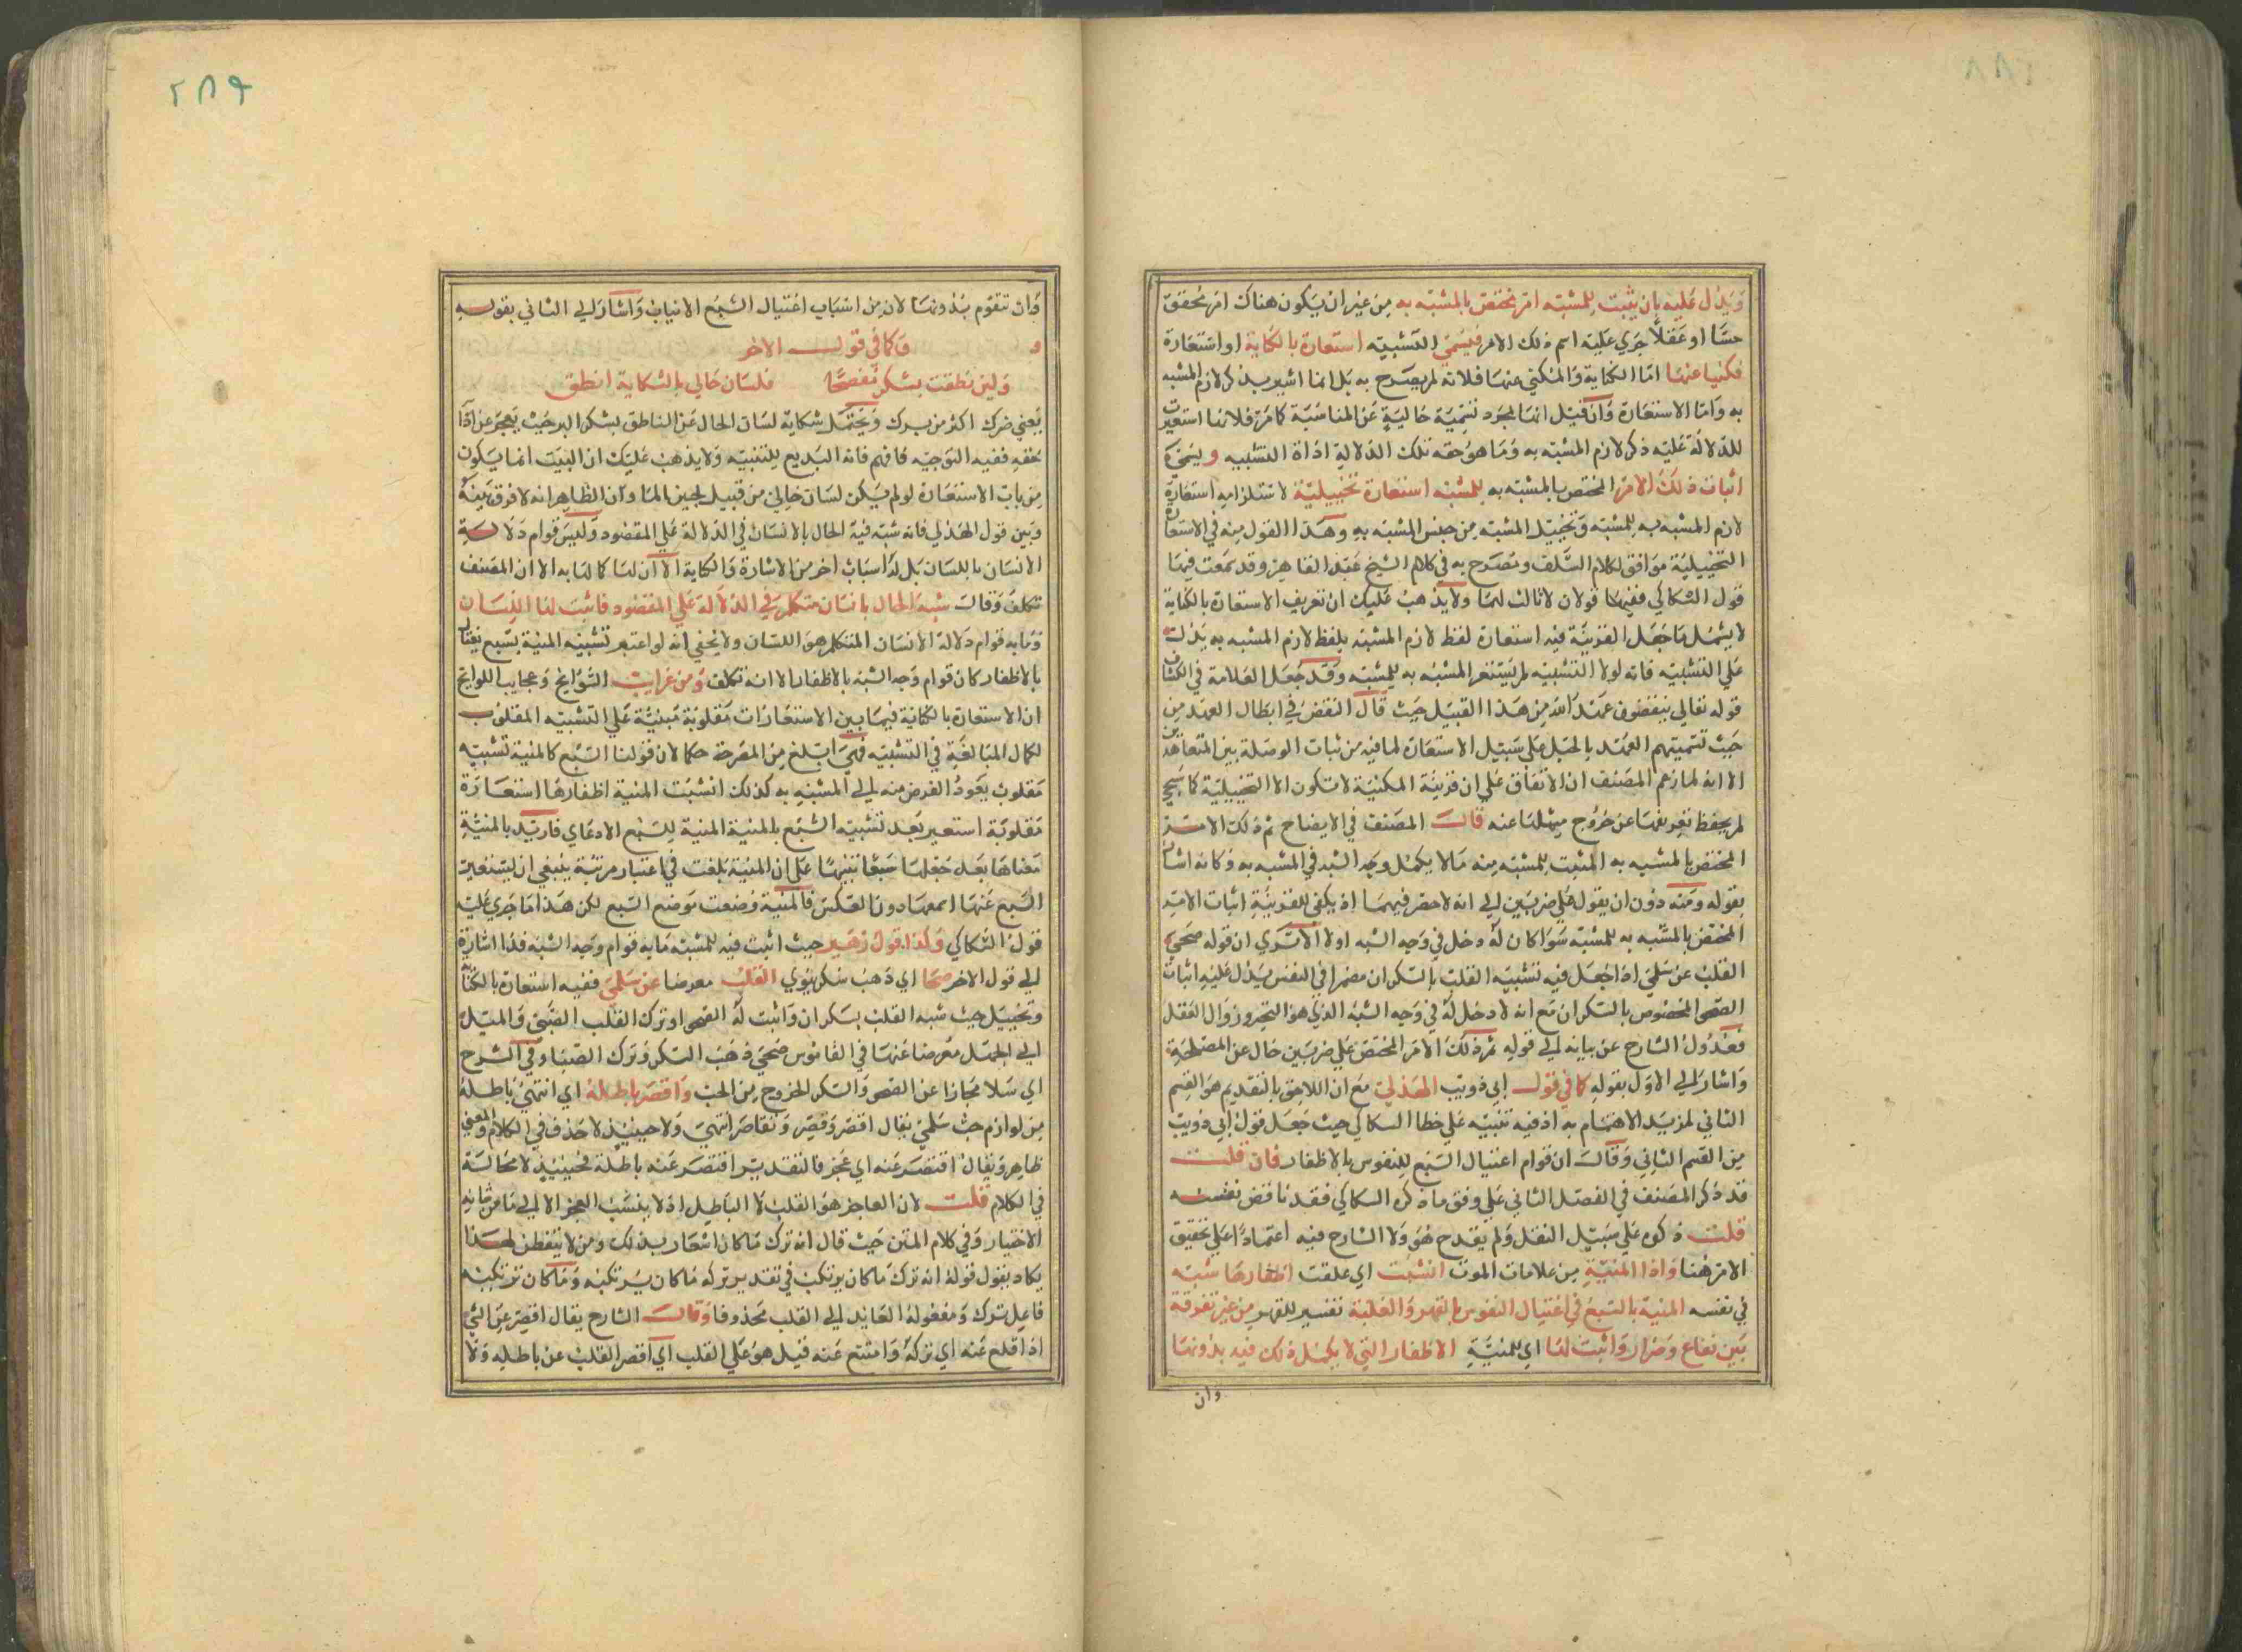 ويدل عليه بان يثبت للمشبه امر يختص بالمشبه به من غير ان يكون هناك امر محقق
حسا او عقلا جري عليه اسم ذلك الامر فيسمي التشبيه استعارة بالكناية او استعارة
مكنيا عنها اما الكناية والمكني عنها فلانه لم يصرح به بل انما اشير بذكر لازم المشبه
به واما الاستعارة وان قيل انما لمجرد تسمية خالية عن المناسبة كما مر فلانما استعيرت
للدلالة عليه ذكر لازم المشبه به وما هو حقه تلك الدلالة اداة التشبيه ويسمي
اثبات ذلك الامر المختص بالمشبه به للمشبه استعارة تخييلية لاستلزامه استعارة
لازم المشبه به للمشبه وتخييل المشبه من جنس المشبه به وهذا القول منه في الاستعارة
التخييلية موافق لكلام السلف ومصرح به في كلام الشيخ عبد القاهر وقد سمعت فيما
قول السكاكي ففيهما قولان لا ثالث لهما ولا يذهب عليك ان تعريف الاستعارة بالكناية
لا يشمل ما جعل القرينة فيه استعارة لفظ لازم المشبه بلفظ لازم المشبه به يدل
علي التشبيه فانه لولا التشبيه لم يستعر المشبه به للمشبه وقد جعل العلامة في الكشاف
قوله تعالي ينقضون عهد الله من هذا القبيل حيث قال النقض في ابطال العهد من
حيث تسميتهم العهد بالحبل علي سبيل الاستعارة لما فيه من ثبات الوصلة بين المتعاهدين
الا انه لما زعم المصنف ان الاتفاق علي ان قرينة المكنية لا تكون الا التخييلية كما سيجي
لم يحفظ تعريفها عن خروج مثلها عنه قال المصنف في الايضاح ثم ذلك الامر
المختص بالمشبه به المثبت للمشبه منه ما لا يكمل وجه الشبه في المشبه به وكانه اشار
بقوله ومنه دون ان يقول علي ضربين الي انه لا حصر فيهما اذ يكفي للقرينة اثبات الامر
المختص بالمشبه به للمشبه سوا كان له دخل في وجه الشبه او لا الا تري ان قوله صحي
القلب عن سلمي اذا جعل فيه تشبيه القلب بالسكران مضمرا في النفس يدل عليه اثبات
الصحو المخصوص بالسكران مع انه لا دخل له في وجه الشبه الذي هو التحير وزوال العقل
فعدول الشارح عن بيانه الي قوله ثم ذلك الامر المختص علي ضربين خال عن المصلحة
واشار الي الاول بقوله كما في قول ابي ذويب الهذلي مع ان اللاحق بالتقديم هو القسم
الثاني لمزيد الاهتمام به اذ فيه تنبيه علي خطا السكاكي حيث جعل قول ابي ذويب
من القسم الثاني وقال ان قوام اغتيال السبع للنفوس بالاظفار فان قلت
قد ذكر المصنف في الفصل الثاني علي وفق ما ذكره السكاكي فقد ناقض نفسه
قلت ذكره علي سبيل النقل ولم يقدح هو ولا الشارح فيه اعتمادا علي تحقيق
الامر هنا واذا المنية من علامات الموت انشبت اي علقت اظفارها شبه
في نفسه المنية بالسبع في اغتيال النفوس بالقهر والغلبة تفسير للقهر من غير تفرقة
بين نفاع وضرار واثبت لها اي للمنية الاظفار التي لا يكمل ذلك فيه بدونها
وان
٢٨٩
وان تقوم بدونها لان من اسباب اغتيال السبع الانياب واشار الي الثاني بقوله
و وكما في قول الاخر
ولئن نطقت بشكر مفصحا فلسان حالي بالشكاية انطق
يعني ضرك اكثر من برك ويحتمل شكاية لسان الحال عن الناطق بشكر البر حيث يعجز عن ادا
حقه ففيه التوجيه فافهم فانه البديع للتنبيه ولا يذهب عليك ان البيت انما يكون
من باب الاستعارة لو لم يكن لسان حالي من قبيل لجين الما وان الظاهر انه لا فرق بينه
وبين قول الهذلي فانه شبه فيه الحال بالانسان في الدلالة علي المقصود وليس قوام دلالة
الانسان باللسان بل له اسباب اخر من الاشارة والكتابة الا ان لما كا لنا به الا ان المصنف
تكلف وقال شبه الحال بانسان متكلم في الدلالة علي المقصود فاثبت لها اللسان
وما به قوام دلالة الانسان المتكلم هو اللسان ولا يخفي انه لو اعتبر تشبيه المنية بسبع يغتال
بالاظفار كان قوام وجه الشبه بالاظفار الا انه تكلف ومن غرايب السوانح وعجايب اللوايح
ان الاستعارة بالكناية فيما بين الاستعارات مقلوبة مبنية علي التشبيه المقلوب
لكمال المبالغة في التشبيه فهي ابلغ من المصرحة فكما لان قولنا السبع كالمنية تشبيه
مقلوب يعود الغرض منه الي المشبه به كذلك انشبت المنية اظفارها استعارة
مقلوبة استعير بعد تشبيه السبع بالمنية المنية للسبع الادعاي فاريد بالمنية
معناها بعد جعلها سبعا تنبيها علي ان المنية بلغت في اعتبار مرتبة ينبغي ان يستعير
السبع عنها اسمها دون العكس فالمنية وضعت موضع السبع لكن هذا ما جري عليه
قول السكاكي وكذا قول زهير حيث اثبت فيه للمشبه ما به قوام وجه الشبه فذا اشارة
الي قول الاخر صحا اي ذهب سكر يروي القلب معرضا عن سلمي ففيه استعارة بالكناية
وتخييل حيث شبه القلب بسكران واثبت له الصحو او ترك القلب الصبي والميل
الي الجهل معرضا عنها في القاموس صحي ذهب السكر وترك الصبا وفي الشرح
اي سلا مجازا عن الصحو والسكر الخروج من الحب واقصر باطله اي انتهي باطله
من لوازم حب سلمي يقال اقصر وقصر وتقاصر انتهي ولا حينيذ لا حذف في الكلام والمعني
ظاهر ويقال اقتصر عنه اي عجز فالتقدير اقتصر عنه باطله فحينيذ لا محالة
في الكلام قلت لان العاجز هو القلب لا الباطل اذ لا ينسب العجز الا الي ما من شانه
الاختيار وفي كلام المتن حيث قال انه ترك ما كان اشعار بذلك ومن لا يتفطن لهذا
يكاد يقول قوله انه ترك ما كان يرتكب في تقدير تركه ما كان يرتكبه وما كان ترتكبه
فاعل ترك ومفعوله العايد الي القلب محذوفا وقال الشارح يقال اقصر عن الشي
اذا اقلع عنه اي تركه وامتنع عنه قيل هو علي القلب اي اقصر القلب عن باطله ولا